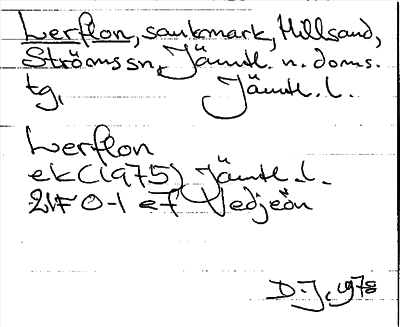 Lerflon, sankmark, Hillsand,
Ströms sn, Jämtl. n. doms.
tg, Jämtl. l.
Lerflon
ek (1975) Jämtl. l.
21F 0-1 ef Vedjeön
D.J. 1978